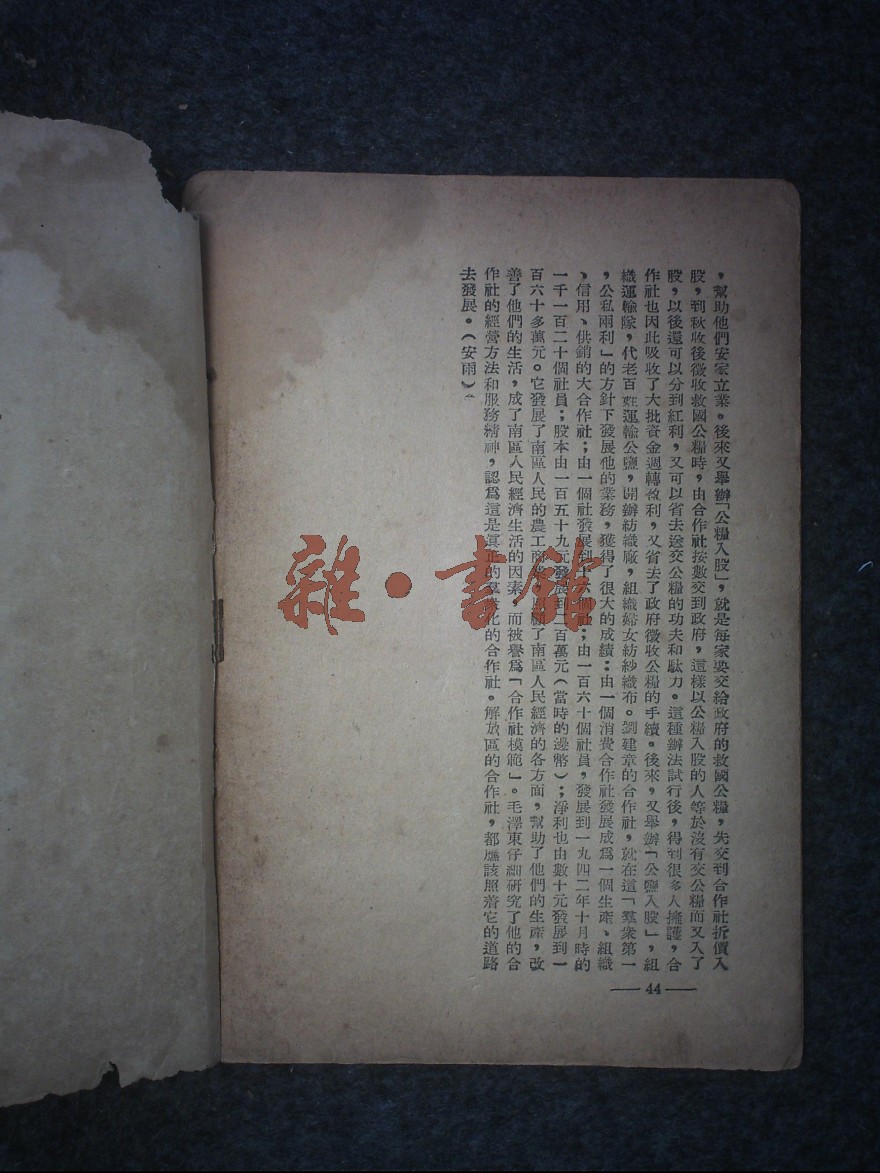 ，幫助他們安家立業。後來又舉辦「公糧入股」，就是每家要交給政府的救國公糧，先交到合作社折價入
股，到秋收後徵收救國公糧時，由合作社按數交到政府，這樣以公糧入股的人等於沒有交公糧而又入了
股，以後還可以分到紅利，又可以省去送交公糧的功夫和馱力。這種辦法試行後，得到很多人擁護，合
作社也因此吸收了大批資金週轉盈利，又省去了政府徵收公糧的手續。後來，又舉辦「公鹽入股」，組
織運輸隊，代老百姓運輸公鹽，開辦紡織廠，組織婦女紡紗織布。劉建章的合作社，就在這「羣衆第一
，公私兩利」的方針下發展他的業務，獲得了很大的成績：由一個消費合作社發展成爲一個生產、組織
、信用、供銷的大合作社；由一個社發展到十六個社；由一百六十個社員，發展到一九四二年十月時的
一千一百二十個社員；股本由一百五十九元發展到二百萬元（當時的邊幣）；淨利也由數十元發展到一
百六十多萬元。它發展了南區人民的農工商業，照顧了南區人民經濟的各方面，幫助了他們的生產，改
善了他們的生活，成了南區人民經濟生活的因素 而被譽爲「合作社模範」。毛澤東仔細研究了他的合
作社的經營方法和服務精神，認爲這是眞正的羣衆化的合作社。解放區的合作社，都應該照着它的道路
去發展。（安雨）
— 44 —
雜·書館